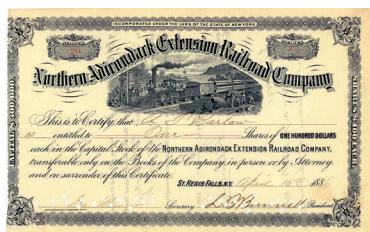 INCORPORATED UNDER THE LAWS OF THE STATE OF NEW YORK
NUMBER
20
SHARES
Northern Adirondack Extension Railroad Company
CAPITAL $800,000
SHARES $100 EACH
This is to Certify that
is entitled to One Shares of ONE HUNDRED DOLLARS
each in the Capital Stock of the NORTHERN ADIRONDACK EXTENSION RAILROAD COMPANY,
transferable only on the Books of the Company, in person or by Attorney
and on surrender of this Certificate.
ST. REGIS FALLS, N.Y. April 15th 1886
Secretary
President